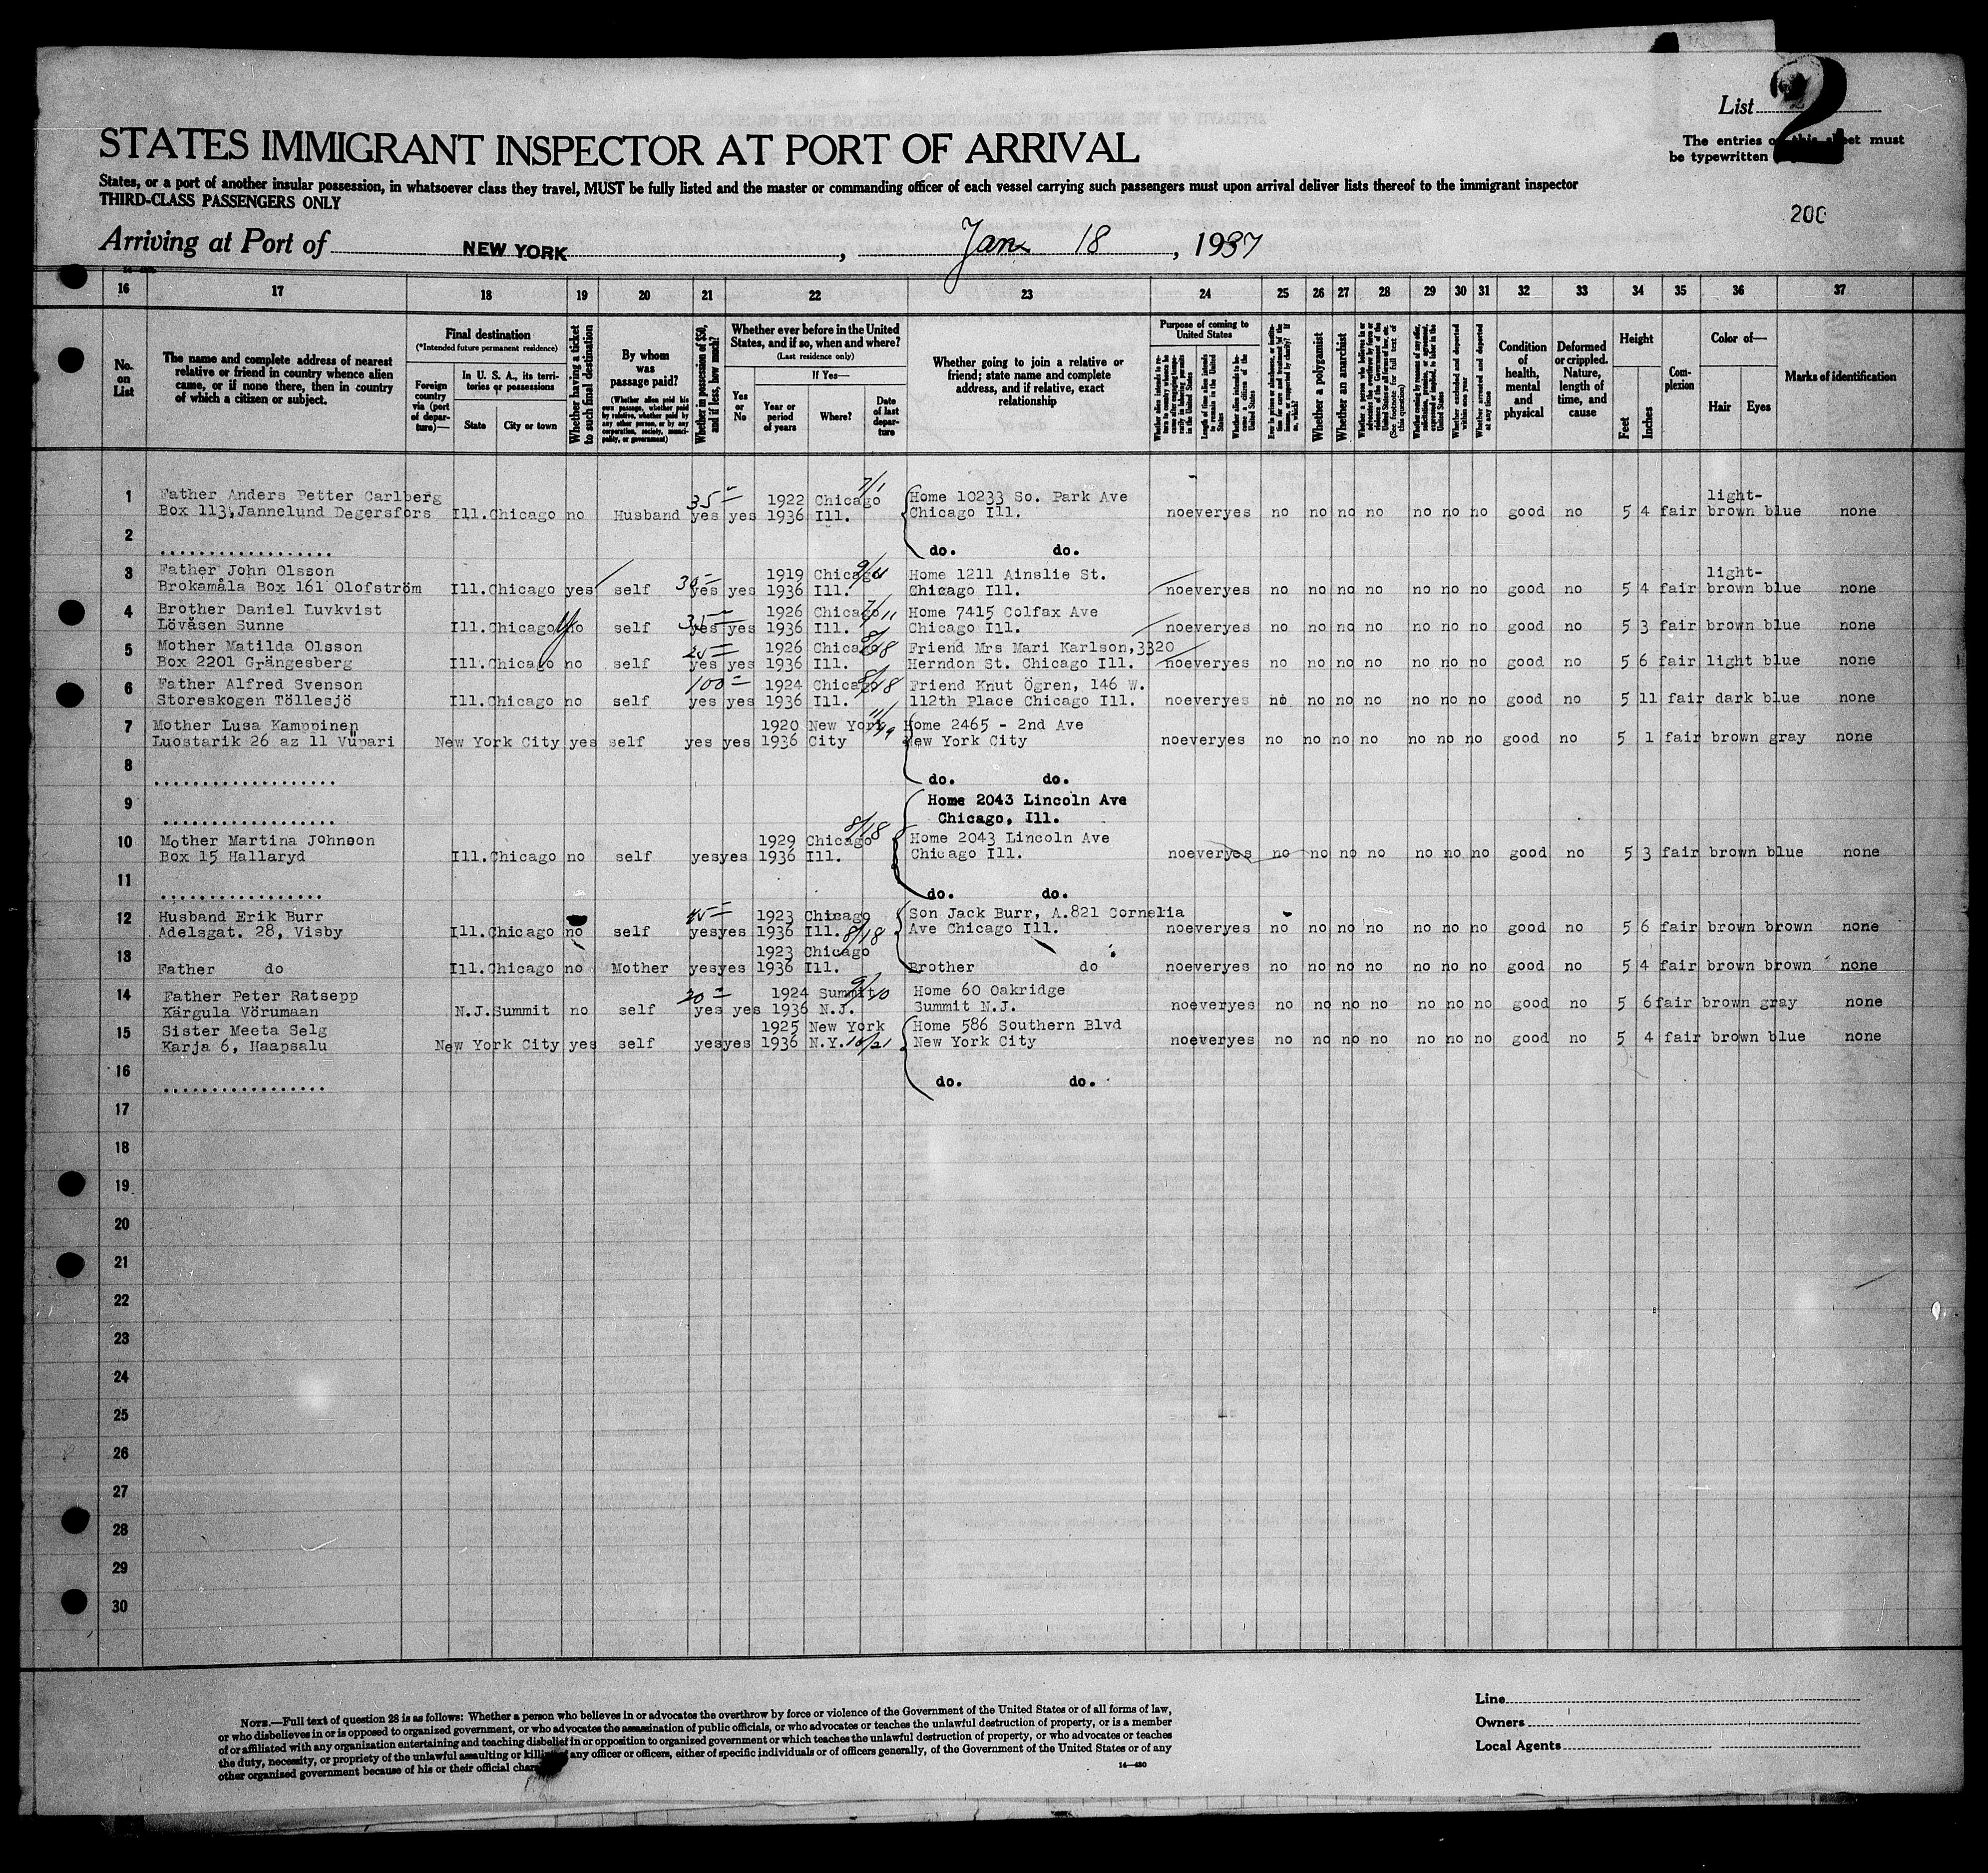 List 2
STATES IMMIGRANT INSPECTOR AT PORT OF ARRIVAL
The entries on this sheet must
be typewritten
States, or a port of another insular possession, in whatsoever class they travel, MUST be fully listed and the master or commanding officer of each vessel carrying such passengers must upon arrival deliver lists thereof to the immigrant inspector
THIRD-CLASS PASSENGERS ONLY
200
Arriving at Port of NEW YORK, Jan 18, 1937
16 17 18 19 20 21 22 23 24 25 26 27 28 29 30 31 32 33 34 35 36 37
No. on List
The name and complete address of nearest relative or friend in country whence alien came, or if none there, then in country of which a citizen or subject.
Final destination
(*Intended future permanent residence)
Foreign country via (port of departure)—
In U. S. A., its territories or possessions
State
City or town
Whether having a ticket to such final destination
By whom was passage paid?
(Whether alien paid his own passage, whether paid by relative, whether paid by any other person, or by any corporation, society, municipality, or government)
Whether in possession of $50, and if less, how much?
Whether ever before in the United States, and if so, when and where?
(Last residence only)
Yes or No
If Yes—
Year or period of years
Where?
Date of last departure
Whether going to join a relative or friend; state name and complete address, and if relative, exact relationship
Purpose of coming to United States
Whether a polygamist
Whether an anarchist
(See footnote for full text of this question)
Whether arrested and deported at any time
Condition of health, mental and physical
Deformed or crippled. Nature, length of time, and cause
Height
Feet
Inches
Complexion
Color of—
Hair
Eyes
Marks of identification
1 Father Anders Petter Carlberg 35 1922 Chicago 7/1 Home 10233 So. Park Ave light-
Box 113, Jannelund Degersfors Ill. Chicago no Husband yes yes 1936 Ill. Chicago Ill. no ever yes no no no no no no no good no 5 4 fair brown blue none
2 .................. do. do.
3 Father John Olsson 30 1919 Chicago Home 1211 Ainslie St. light-
Brokamåla Box 161 Olofström Ill. Chicago yes self yes yes 1936 Ill. Chicago Ill. no ever yes no no no no no no no good no 5 4 fair brown blue none
4 Brother Daniel Luvkvist 35 1926 Chicago 7/11 Home 7415 Colfax Ave
Lövåsen Sunne Ill. Chicago no self yes yes 1936 Ill. Chicago Ill. no ever yes no no no no no no no good no 5 3 fair brown blue none
5 Mother Matilda Olsson 25 1926 Chicago 8/8 Friend Mrs Mari Karlson, 3320
Box 2201 Grängesberg Ill. Chicago no self yes yes 1936 Ill. Herndon St. Chicago Ill. no ever yes no no no no no no no good no 5 6 fair light blue none
6 Father Alfred Svenson 100 1924 Chicago 8/18 Friend Knut Ögren, 146 W.
Storeskogen Töllesjö Ill. Chicago no self yes yes 1936 Ill. 112th Place Chicago Ill. no ever yes no no no no no no no good no 5 11 fair dark blue none
7 Mother Lusa Kamppinen 1920 New York Home 2465 - 2nd Ave
Luostarik 26 az 11 Vüpari New York City yes self yes yes 1936 City New York City no ever yes no no no no no no no good no 5 1 fair brown gray none
8 .................. do. do.
9 .................. Home 2043 Lincoln Ave
Chicago, Ill.
10 Mother Martina Johnson 1929 Chicago 8/18 Home 2043 Lincoln Ave
Box 15 Hallaryd Ill. Chicago no self yes yes 1936 Ill. Chicago Ill. no ever yes no no no no no no no good no 5 3 fair brown blue none
11 .................. do. do.
12 Husband Erik Burr 45 1923 Chicago Son Jack Burr, A.821 Cornelia
Adelsgat. 28, Visby Ill. Chicago no self yes yes 1936 Ill. 8/18 Ave Chicago Ill. no ever yes no no no no no no no good no 5 6 fair brown brown none
13 1923 Chicago
Father do Ill. Chicago no Mother yes yes 1936 Ill. Brother do no ever yes no no no no no no no good no 5 4 fair brown brown none
14 Father Peter Ratsepp 20 1924 Summit 9/10 Home 60 Oakridge
Kärgula Vörumaan N.J. Summit no self yes yes 1936 N.J. Summit N.J. no ever yes no no no no no no no good no 5 6 fair brown gray none
15 Sister Meeta Selg 1925 New York Home 586 Southern Blvd
Karja 6, Haapsalu New York City yes self yes yes 1936 N.Y. 10/21 New York City no ever yes no no no no no no no good no 5 4 fair brown blue none
16 .................. do. do.
17
18
19
20
21
22
23
24
25
26
27
28
29
30
NOTE.—Full text of question 28 is as follows: Whether a person who believes in or advocates the overthrow by force or violence of the Government of the United States or of all forms of law,
or who disbelieves in or is opposed to organized government, or who advocates the assassination of public officials, or who advocates or teaches the unlawful destruction of property, or is a member
of or affiliated with any organization entertaining and teaching disbelief in or opposition to organized government or which teaches the unlawful destruction of property, or who advocates or teaches
the duty, necessity, or propriety of the unlawful assaulting or killing of any officer or officers, either of specific individuals or of officers generally, of the Government of the United States or of any
other organized government because of his or their official
14—430
Line
Owners
Local Agents